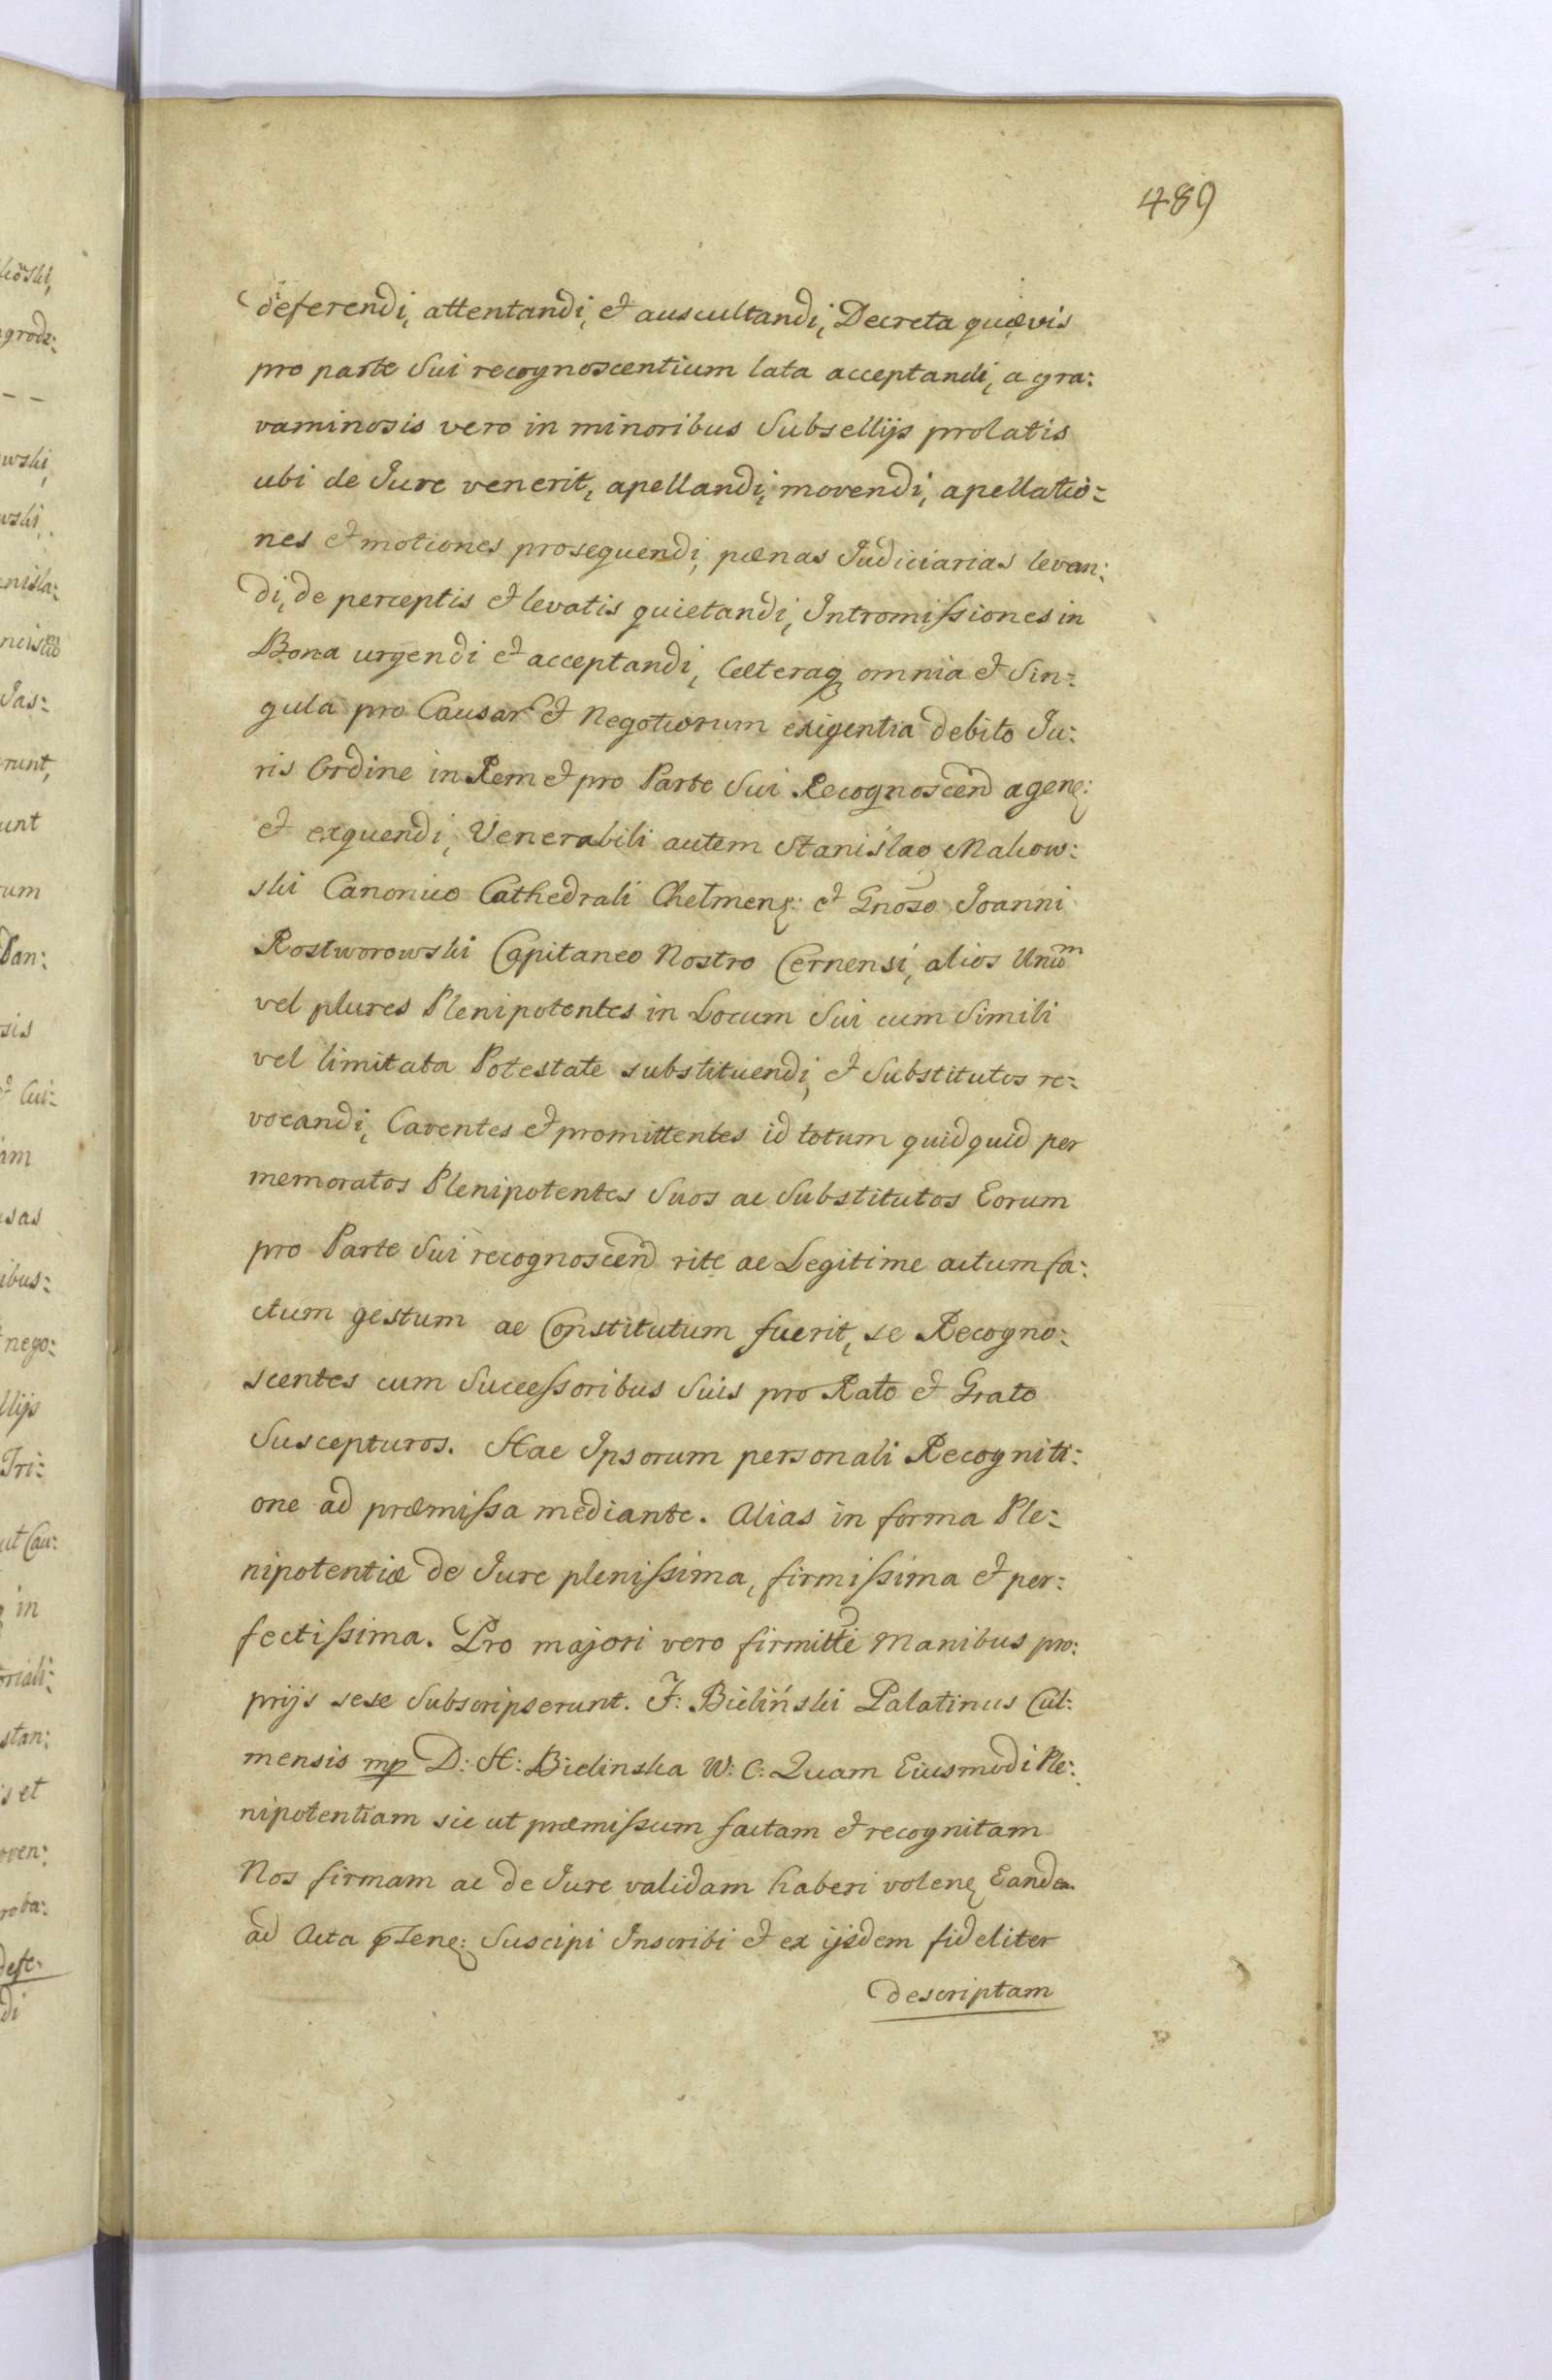 489
deferendi, attentandi, et auscultandi, Decreta quævis
pro parte Sui recognoscentium lata acceptandi, a gra:
vaminosis vero in minoribus Subsellijs prolatis
ubi de Jure venerit, apellandi, movendi, apellatio:
nes et motiones prosequendi, pænas Judiciarias levan:
di, de perceptis et levatis quietandi, Intromissiones in
Bona urgendi et acceptandi, Cæteraq omnia et Sin:
gula pro Causar et Negotiorum exigentia debito Ju:
ris Ordine in Rem et pro Parte Sui Recognoscen agen:
et exquendi, Venerabili autem Stanislao Makow:
ski Canonico Cathedrali Chełmen: et Gnoso Joanni
Rostworowski Capitaneo Nostro Cernensi, alios Unum
vel plures Plenipotentes in Locum Sui cum Simili
vel limitata Potestate substituendi, et Substitutos re:
vocandi, Caventes et promittentes id totum quidquid per
memoratos Plenipotentes Suos ac Substitutos Eorum
pro Parte Sui recognoscen rite ac Legitime actum fa:
ctum gestum ac Constitutum fuerit, se Recogno:
scentes cum Successoribus Suis pro Rato et Grato
Suscepturos. Hac Ipsorum personali Recogniti:
one ad præmissa mediante. Alias in forma Ple:
nipotentiæ de Jure plenissima, firmissima et per:
fectissima. Pro majori vero firmitte Manibus pro:
prijs sese Subscripserunt. F: Bieliński Palatinus Cul:
mensis mp D: H: Bielinska W: C: Quam Eiusmodi Ple:
nipotentiam sic ut præmissum factam et recognitam
Nos firmam ac de Jure validam haberi volen Eandem
ad Acta pten: Suscipi Inscribi et ex ijsdem fideliter
descriptam